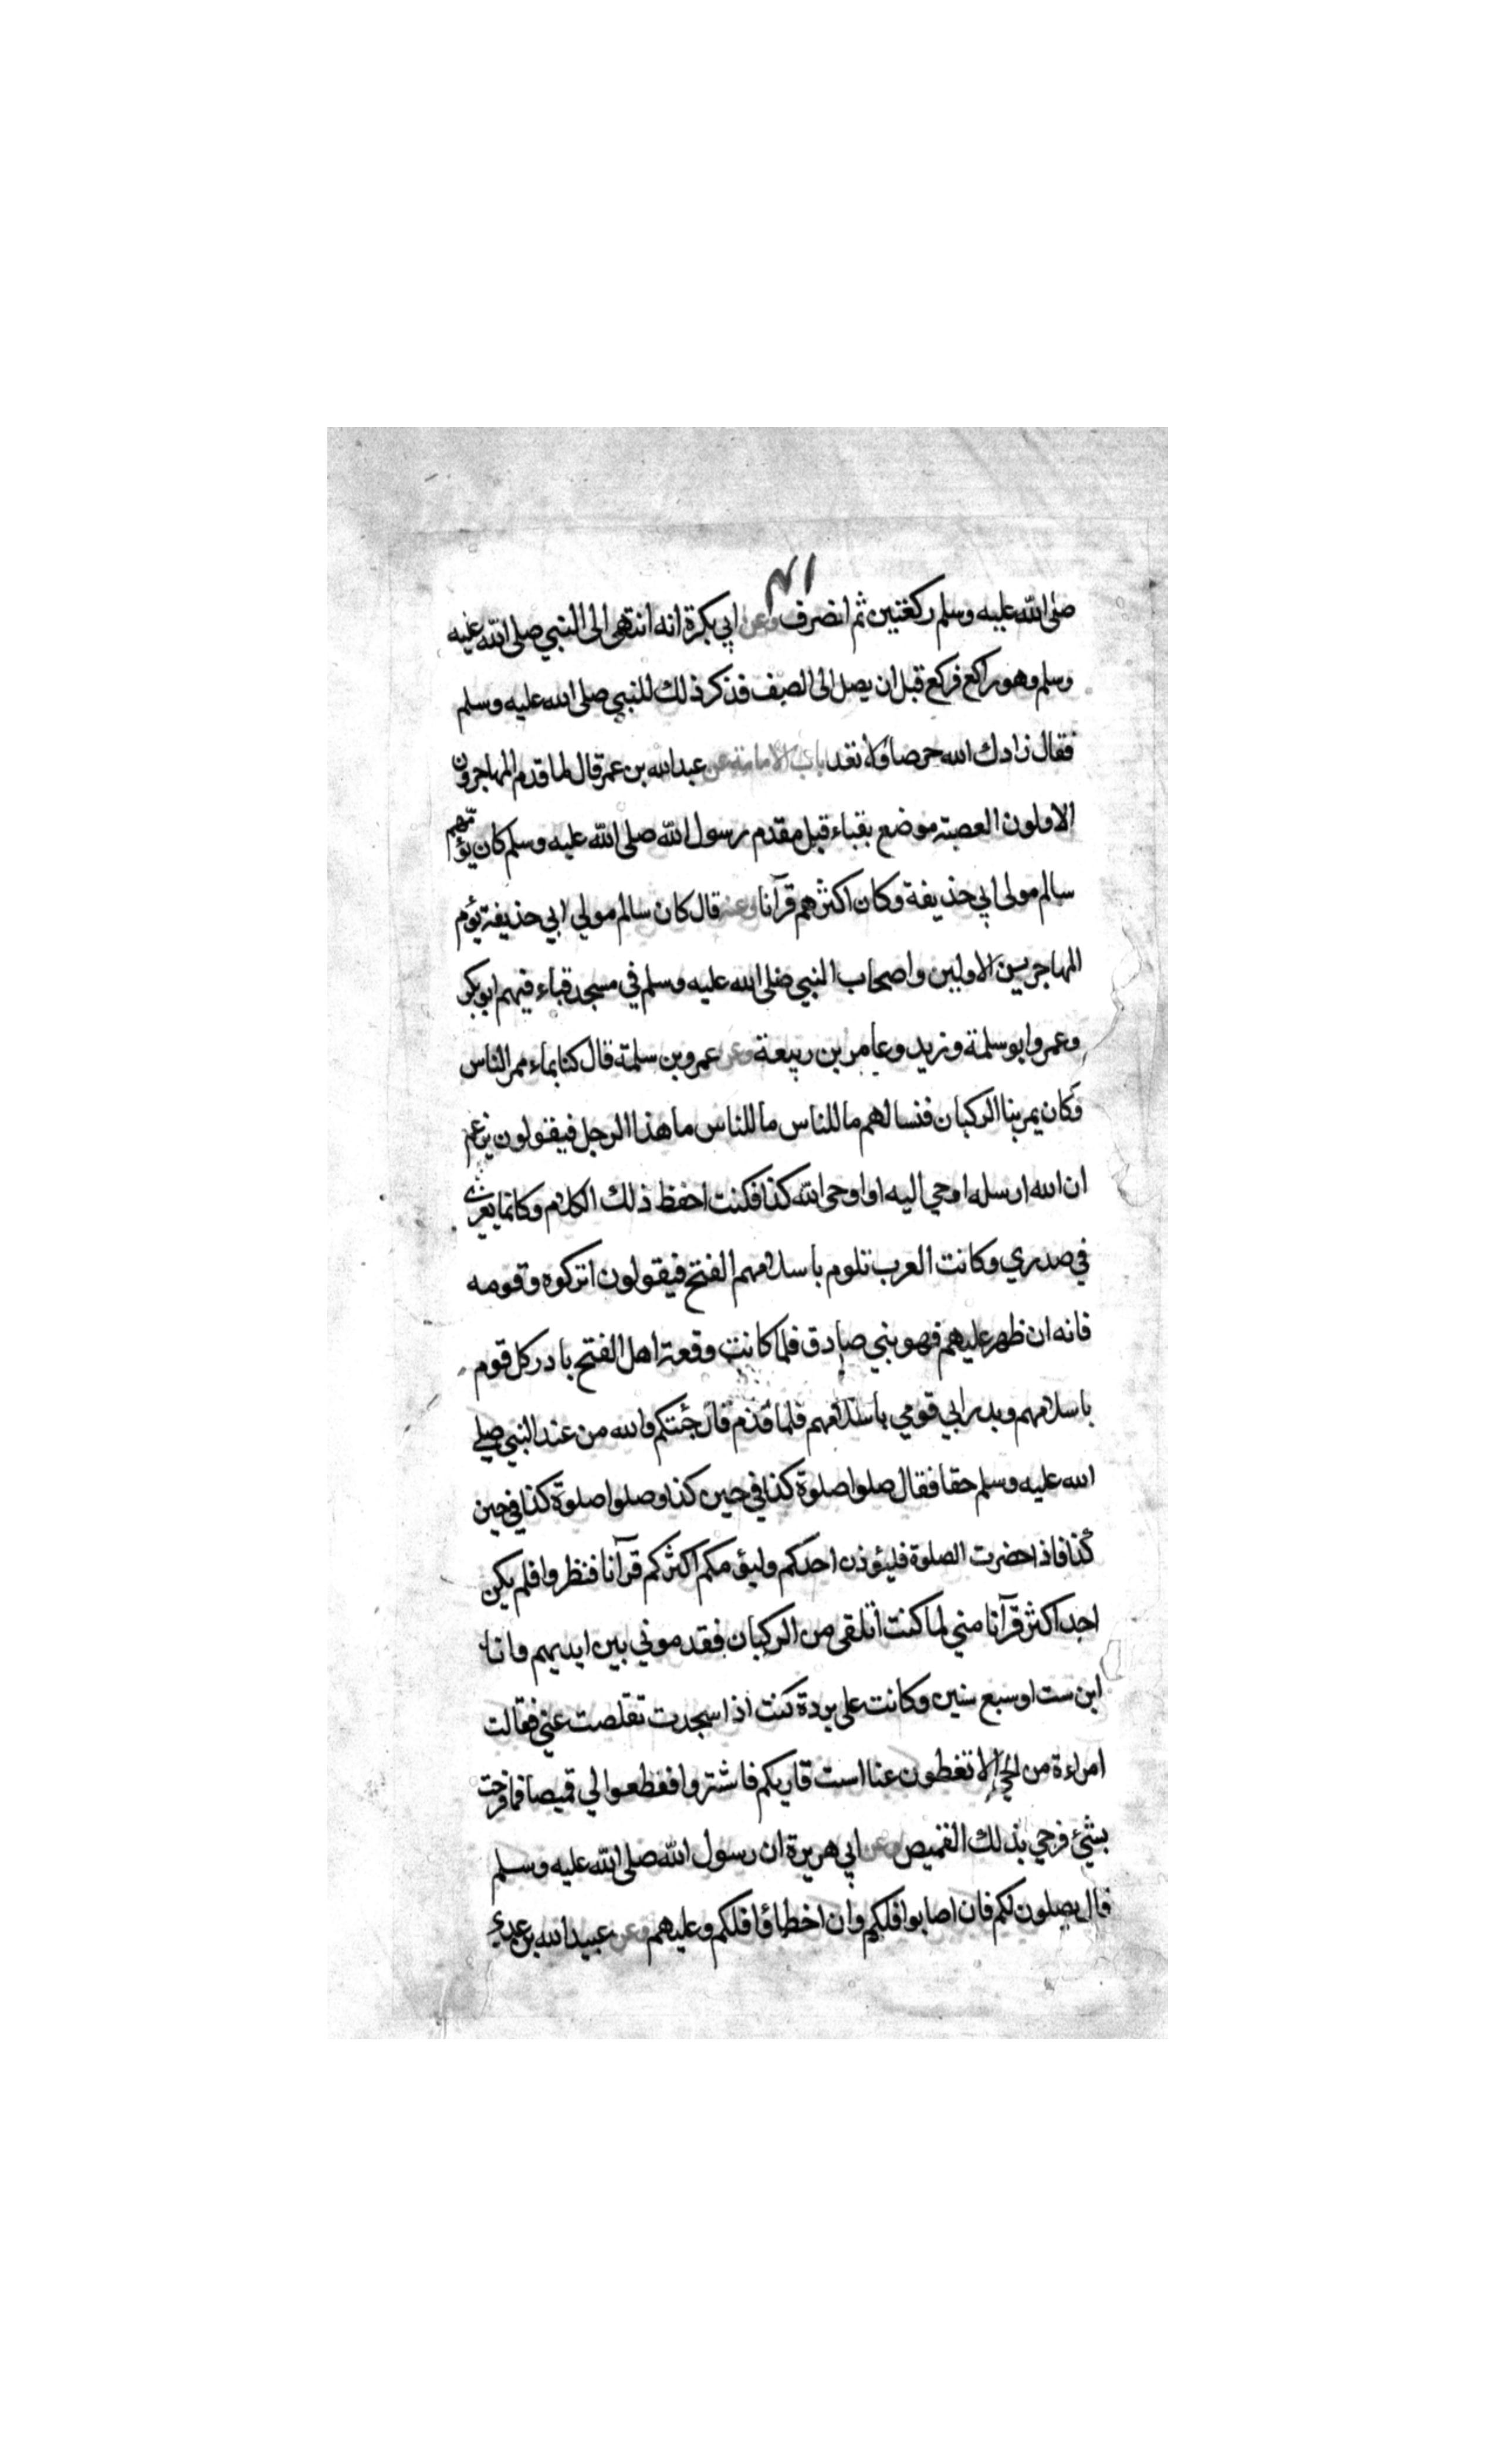 صلى الله عليه وسلم ركعتين ثم انصرف وعن ابي بكرة انه انتهى الى النبي صلى الله عليه
وسلم وهو راكع فركع قبل ان يصل الى الصف فذكر ذلك للنبي صلى الله عليه وسلم
فقال زادك الله حرصا ولا تعد باب الامامة عن عبد الله بن عمر قال لما قدم المهاجرون
الاولون العصبة موضع بقباء قبل مقدم رسول الله صلى الله عليه وسلم كان يؤمهم
سالم مولى ابي حذيفة وكان اكثرهم قرآنا وعنه قال كان سالم مولي ابي حذيفة يؤم
المهاجرين الاولين واصحاب النبي صلى الله عليه وسلم في مسجد قباء فيهم ابو بكر
وعمر وابو سلمة وزيد وعامر بن ربيعة وعن عمرو بن سلمة قال كنا بماء ممر الناس
وكان يمر بنا الركبان فنسالهم ما للناس ما للناس ما هذا الرجل فيقولون يزعم
ان الله ارسله اوحي اليه او اوحى الله كذا فكنت احفظ ذلك الكلام وكانما يغرى
في صدري وكانت العرب تلوم باسلامهم الفتح فيقولون اتركوه وقومه
فانه ان ظهر عليهم فهو نبي صادق فلما كانت وقعة اهل الفتح بادر كل قوم
باسلامهم وبدر ابي قومي باسلامهم فلما قدم قال جئتكم والله من عند النبي صلى
الله عليه وسلم حقا فقال صلوا صلوة كذا في حين كذا وصلوا صلوة كذا في حين
كذا فاذا حضرت الصلوة فليؤذن احدكم وليؤمكم اكثركم قرآنا فنظروا فلم يكن
احد اكثر قرآنا مني لما كنت اتلقى من الركبان فقدموني بين ايديهم وانا
ابن ست او سبع سنين وكانت على بردة كنت اذا سجدت تقلصت عني فقالت
امراءة من الحي الا تغطون عنا است قاريكم فاشتروا فقطعوا لي قميصا فما فرحت
بشيئ فرحي بذلك القميص وعن ابي هريرة ان رسول الله صلى الله عليه وسلم
قال يصلون لكم فان اصابوا فلكم وان اخطاؤا فلكم وعليهم وعن عبيد الله بن عدي